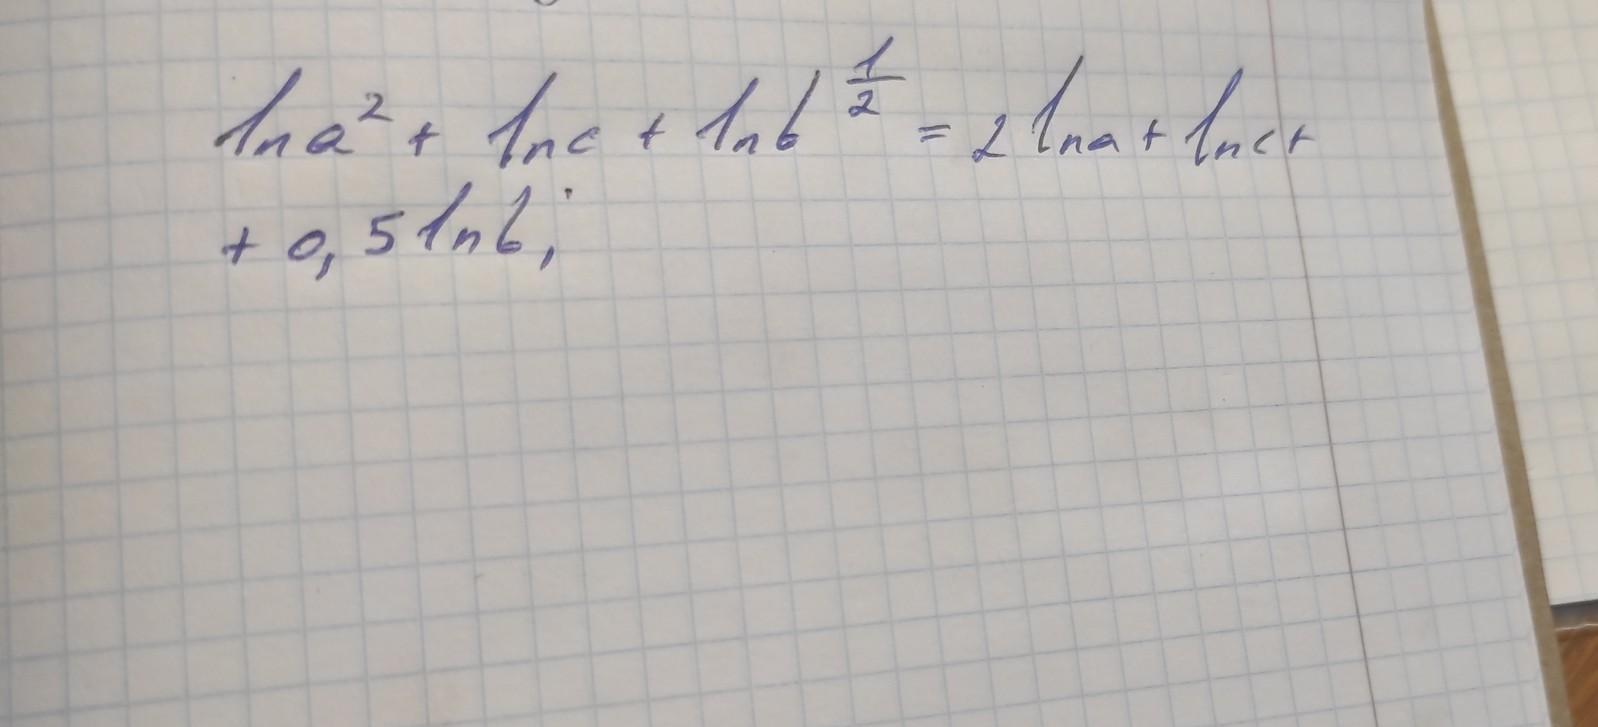 ln a² + ln c + ln b^(1/2) = 2 ln a + ln c +
+ 0,5 ln b;